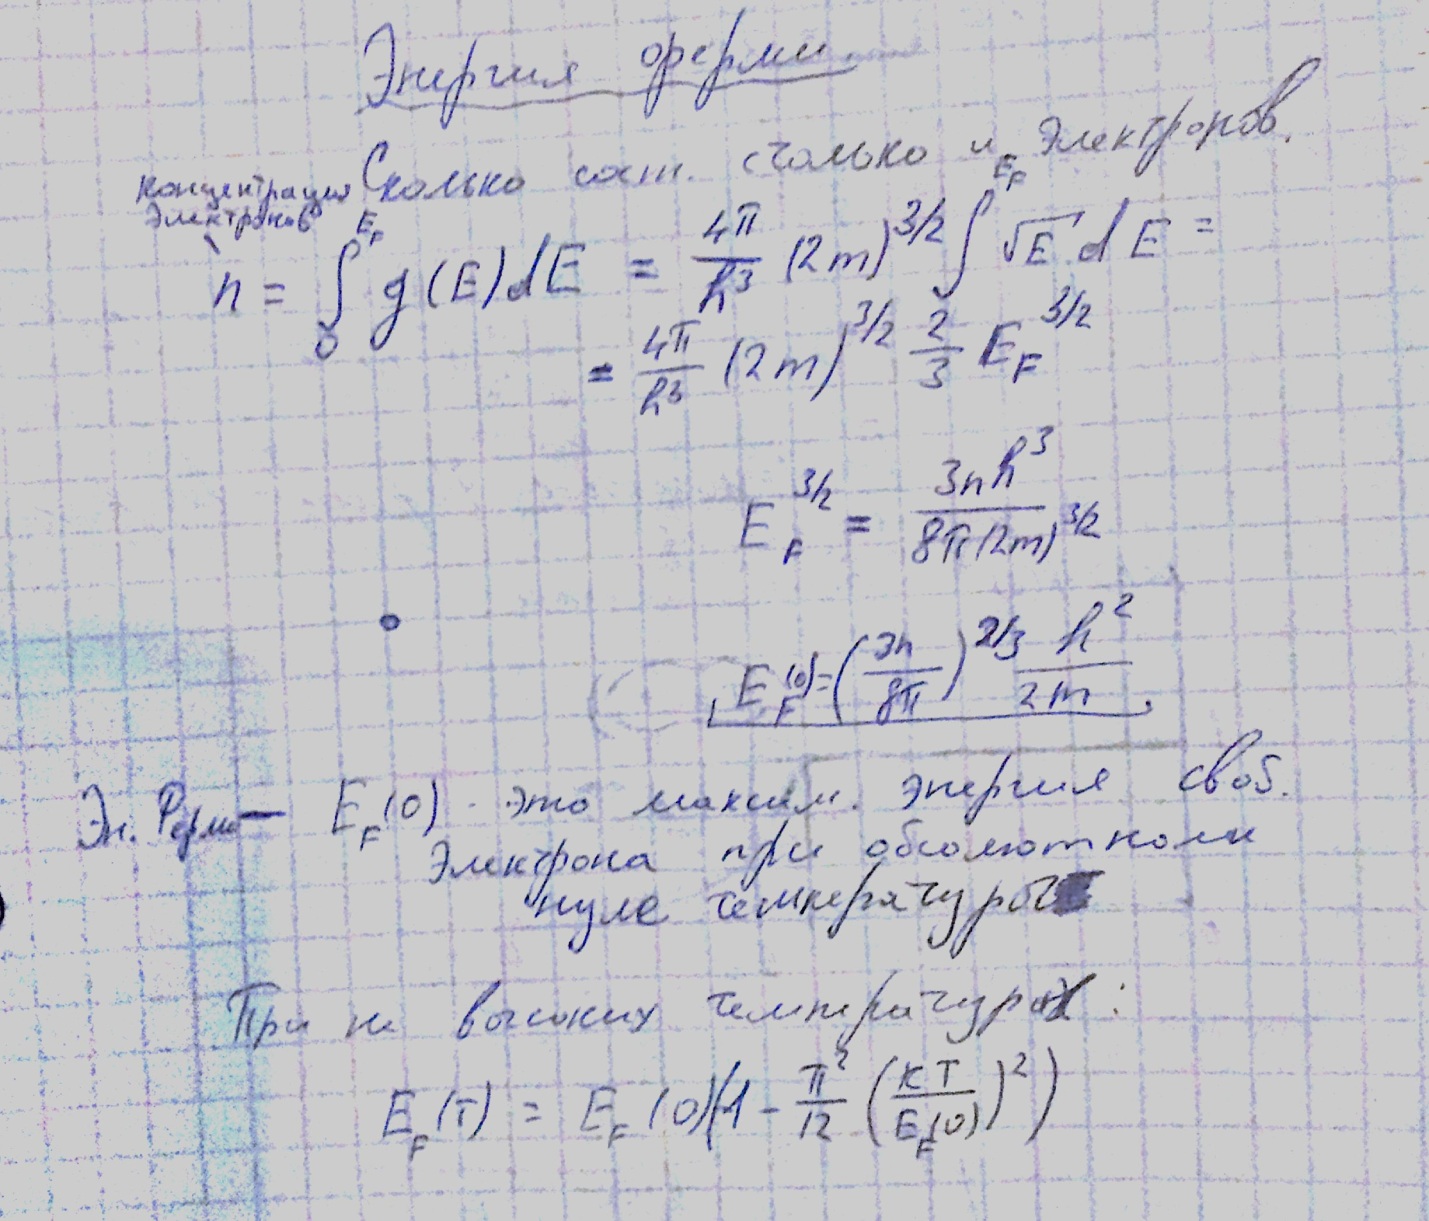 Энергия ферми.
Сколько сост. столько и электронов.
концентрация
электронов
n = ∫₀^{E_F} g(E)dE = 4π/h³ (2m)^{3/2} ∫₀^{E_F} √E dE =
= 4π/h³ (2m)^{3/2} 2/3 E_F^{3/2}
E_F^{3/2} = 3nh³/8π(2m)^{3/2}
E_F(0) = (3n/8π)^{2/3} h²/2m
Эн. Ферми — E_F(0) - это максим. энергия своб.
электрона при абсолютном
нуле температуры
При не высоких температурах:
E_F(T) = E_F(0)(1 - π²/12 (kT/E_F(0))²)